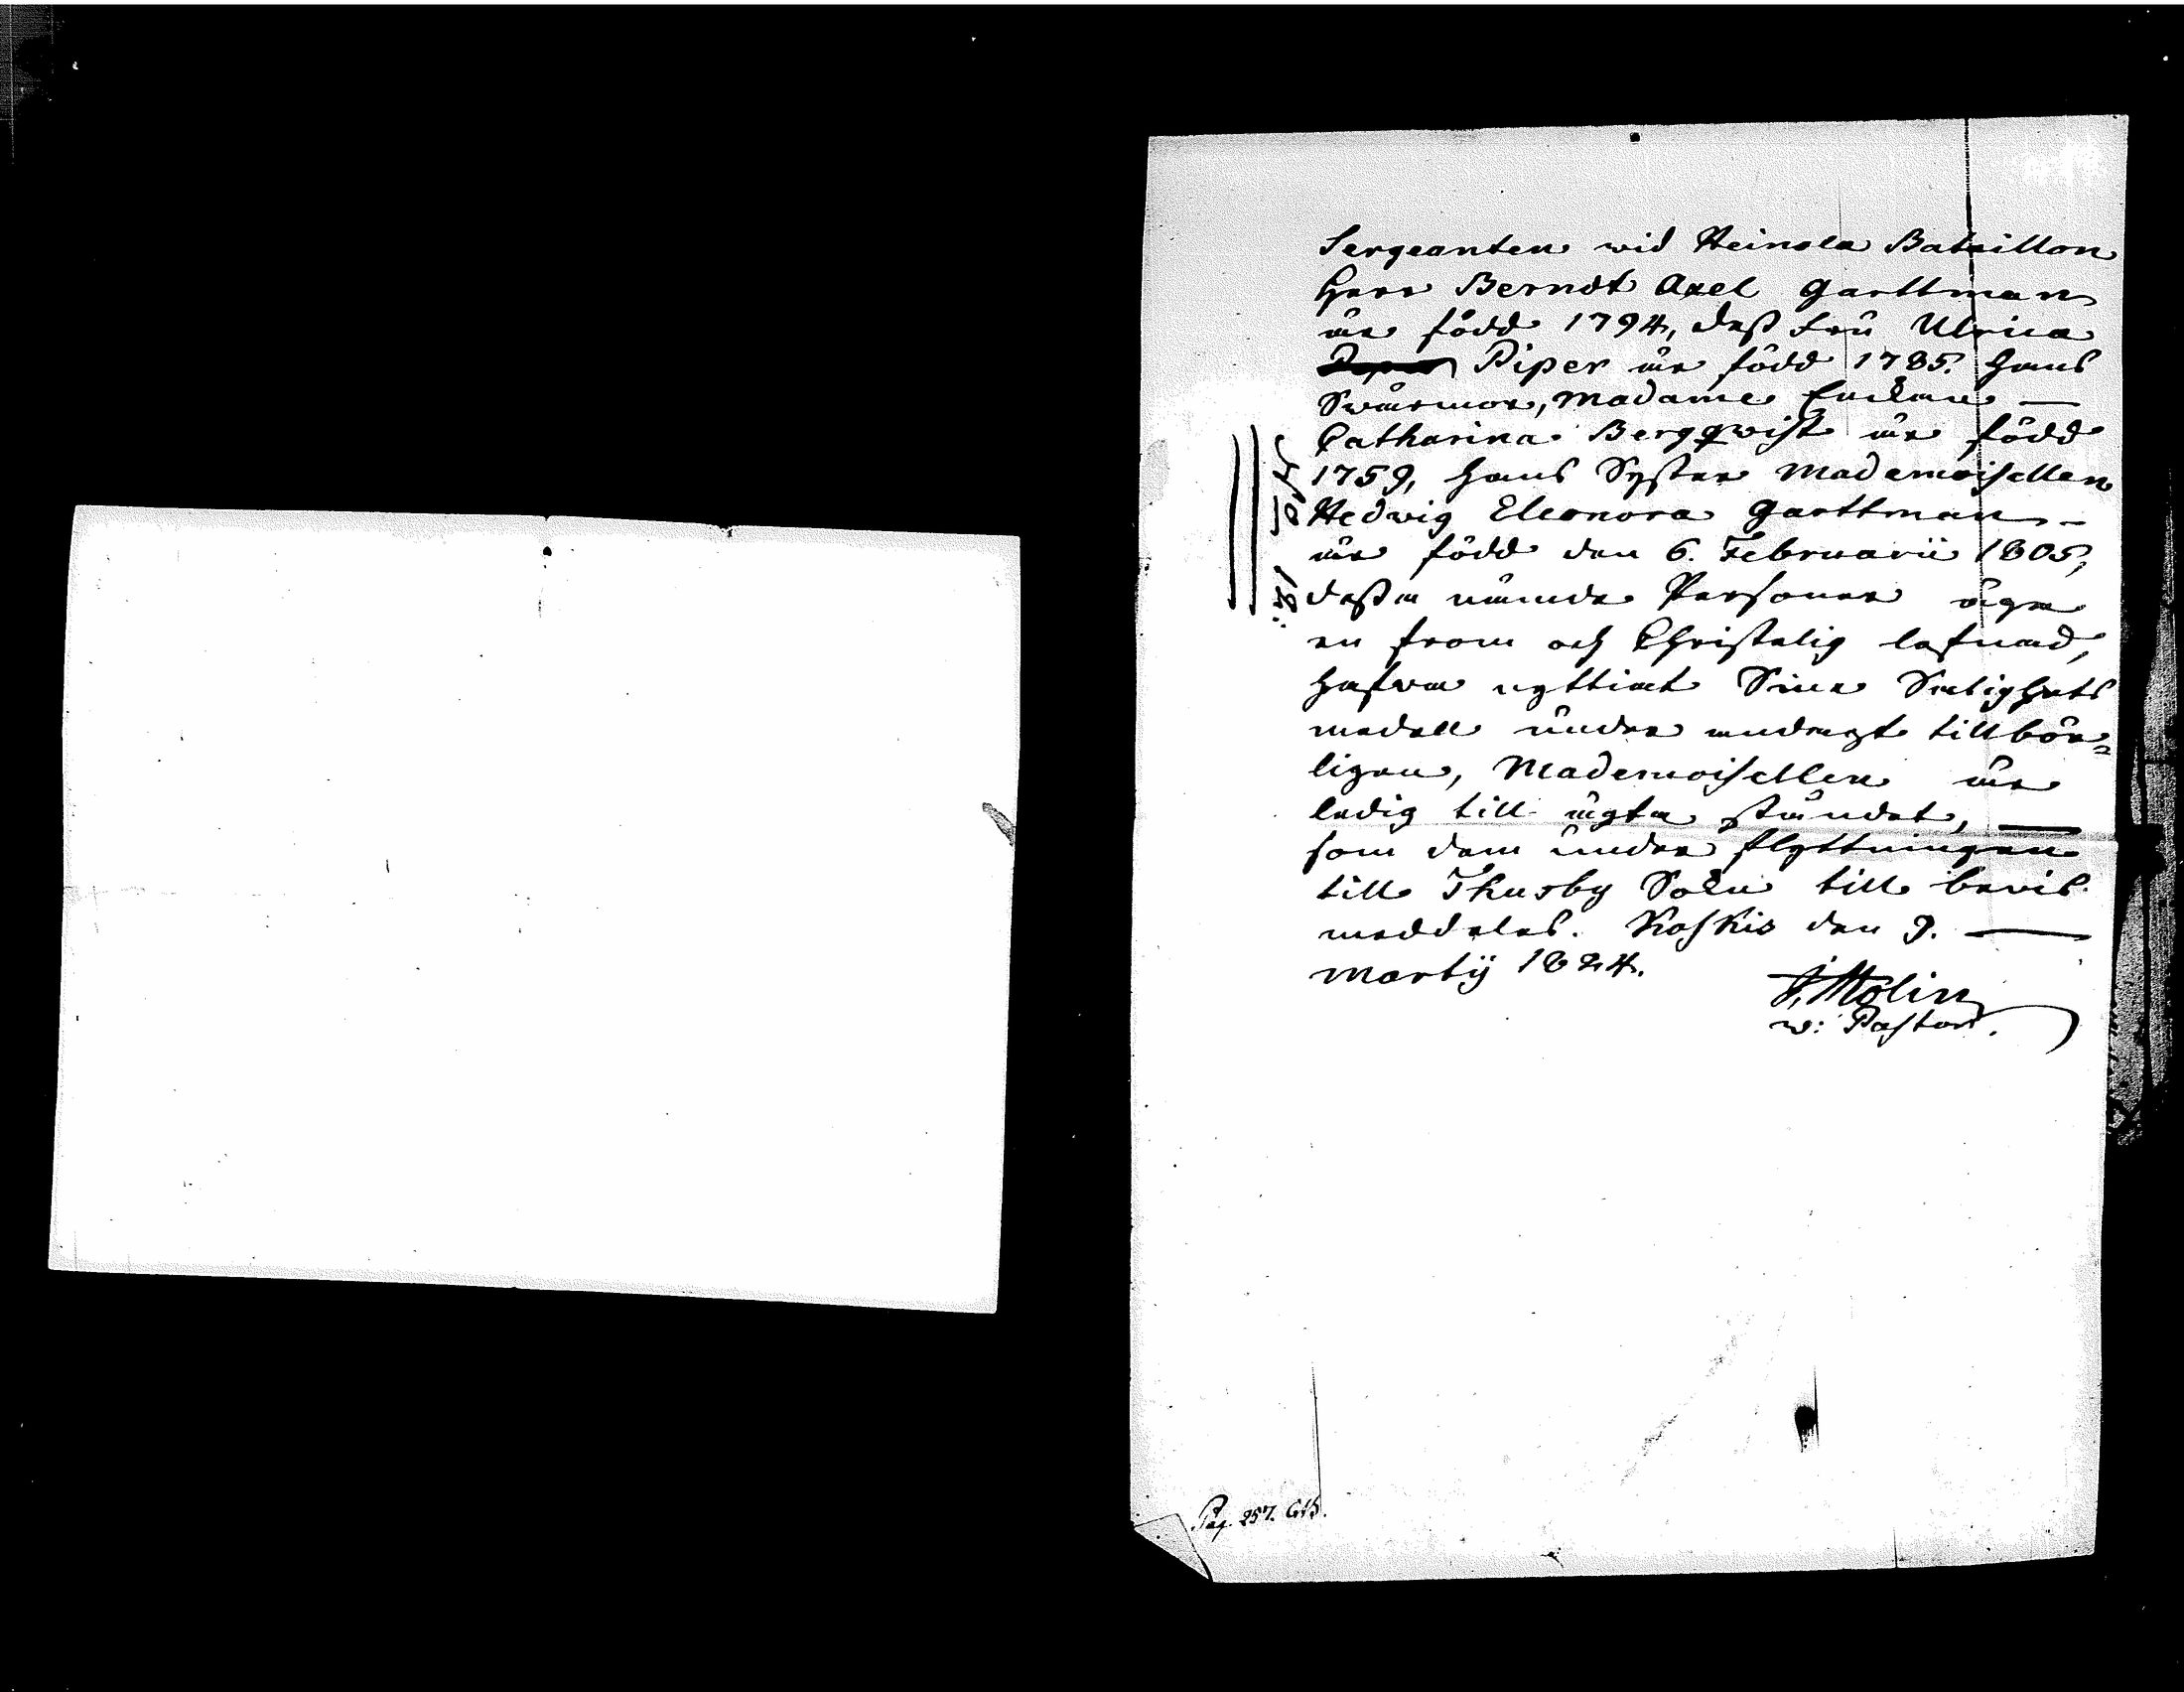 Sergeanten wid Heinola Bataillon
Herr Berndt Axel Garttman
är född 1794, dess Fru Ulrica
Piper är född 1785. Hans
Swärmor, Madame Enckan —
Catharina Bergqwist är född
1759, Hans Syster Mademoisellen
Hedwig Eleonora Garttman –
är född den 6. Februarii 1805,
dessa nämde Personer äga
en from och Christelig lefnad,
Hafwa nyttiat Sina Salighets
medell under andragt tillbör=
ligen, Mademoisellen är
ledig till ägta ståndet, —
som dem under flyttningen
till Thusby Sokn till bevis
meddelas. Koskis den 9. —
Martij 1824.
J. Molin
w: Pastor.
Pag. 257.